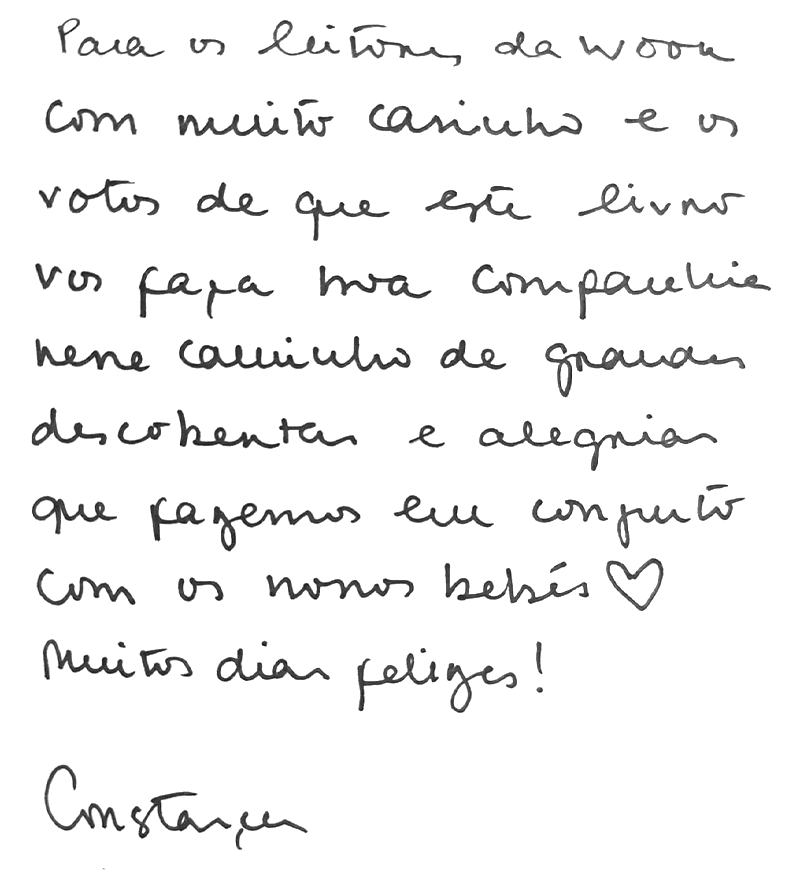 Para os leitores da wook
com muito carinho e os
votos de que este livro
vos faça boa companhia
nesse caminho de grandes
descobertas e alegrias
que fazemos em conjunto
com os nossos bebés ♡
Muitos dias felizes!
Constança